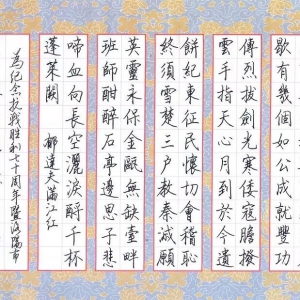 歇有幾個如公成就豐功
偉烈拔劍光寒倭寇膽撥
雲手指天心月到於今遺
餅紀東征民懷切會稽恥
終須雪楚三户教秦滅願
英靈永保金甌無缺臺畔
班師酣醉石亭邊思子悲
啼血向長空灑淚酹千杯
蓬萊闕 郁達夫滿江红
為纪念抗戰胜利七十周年暨